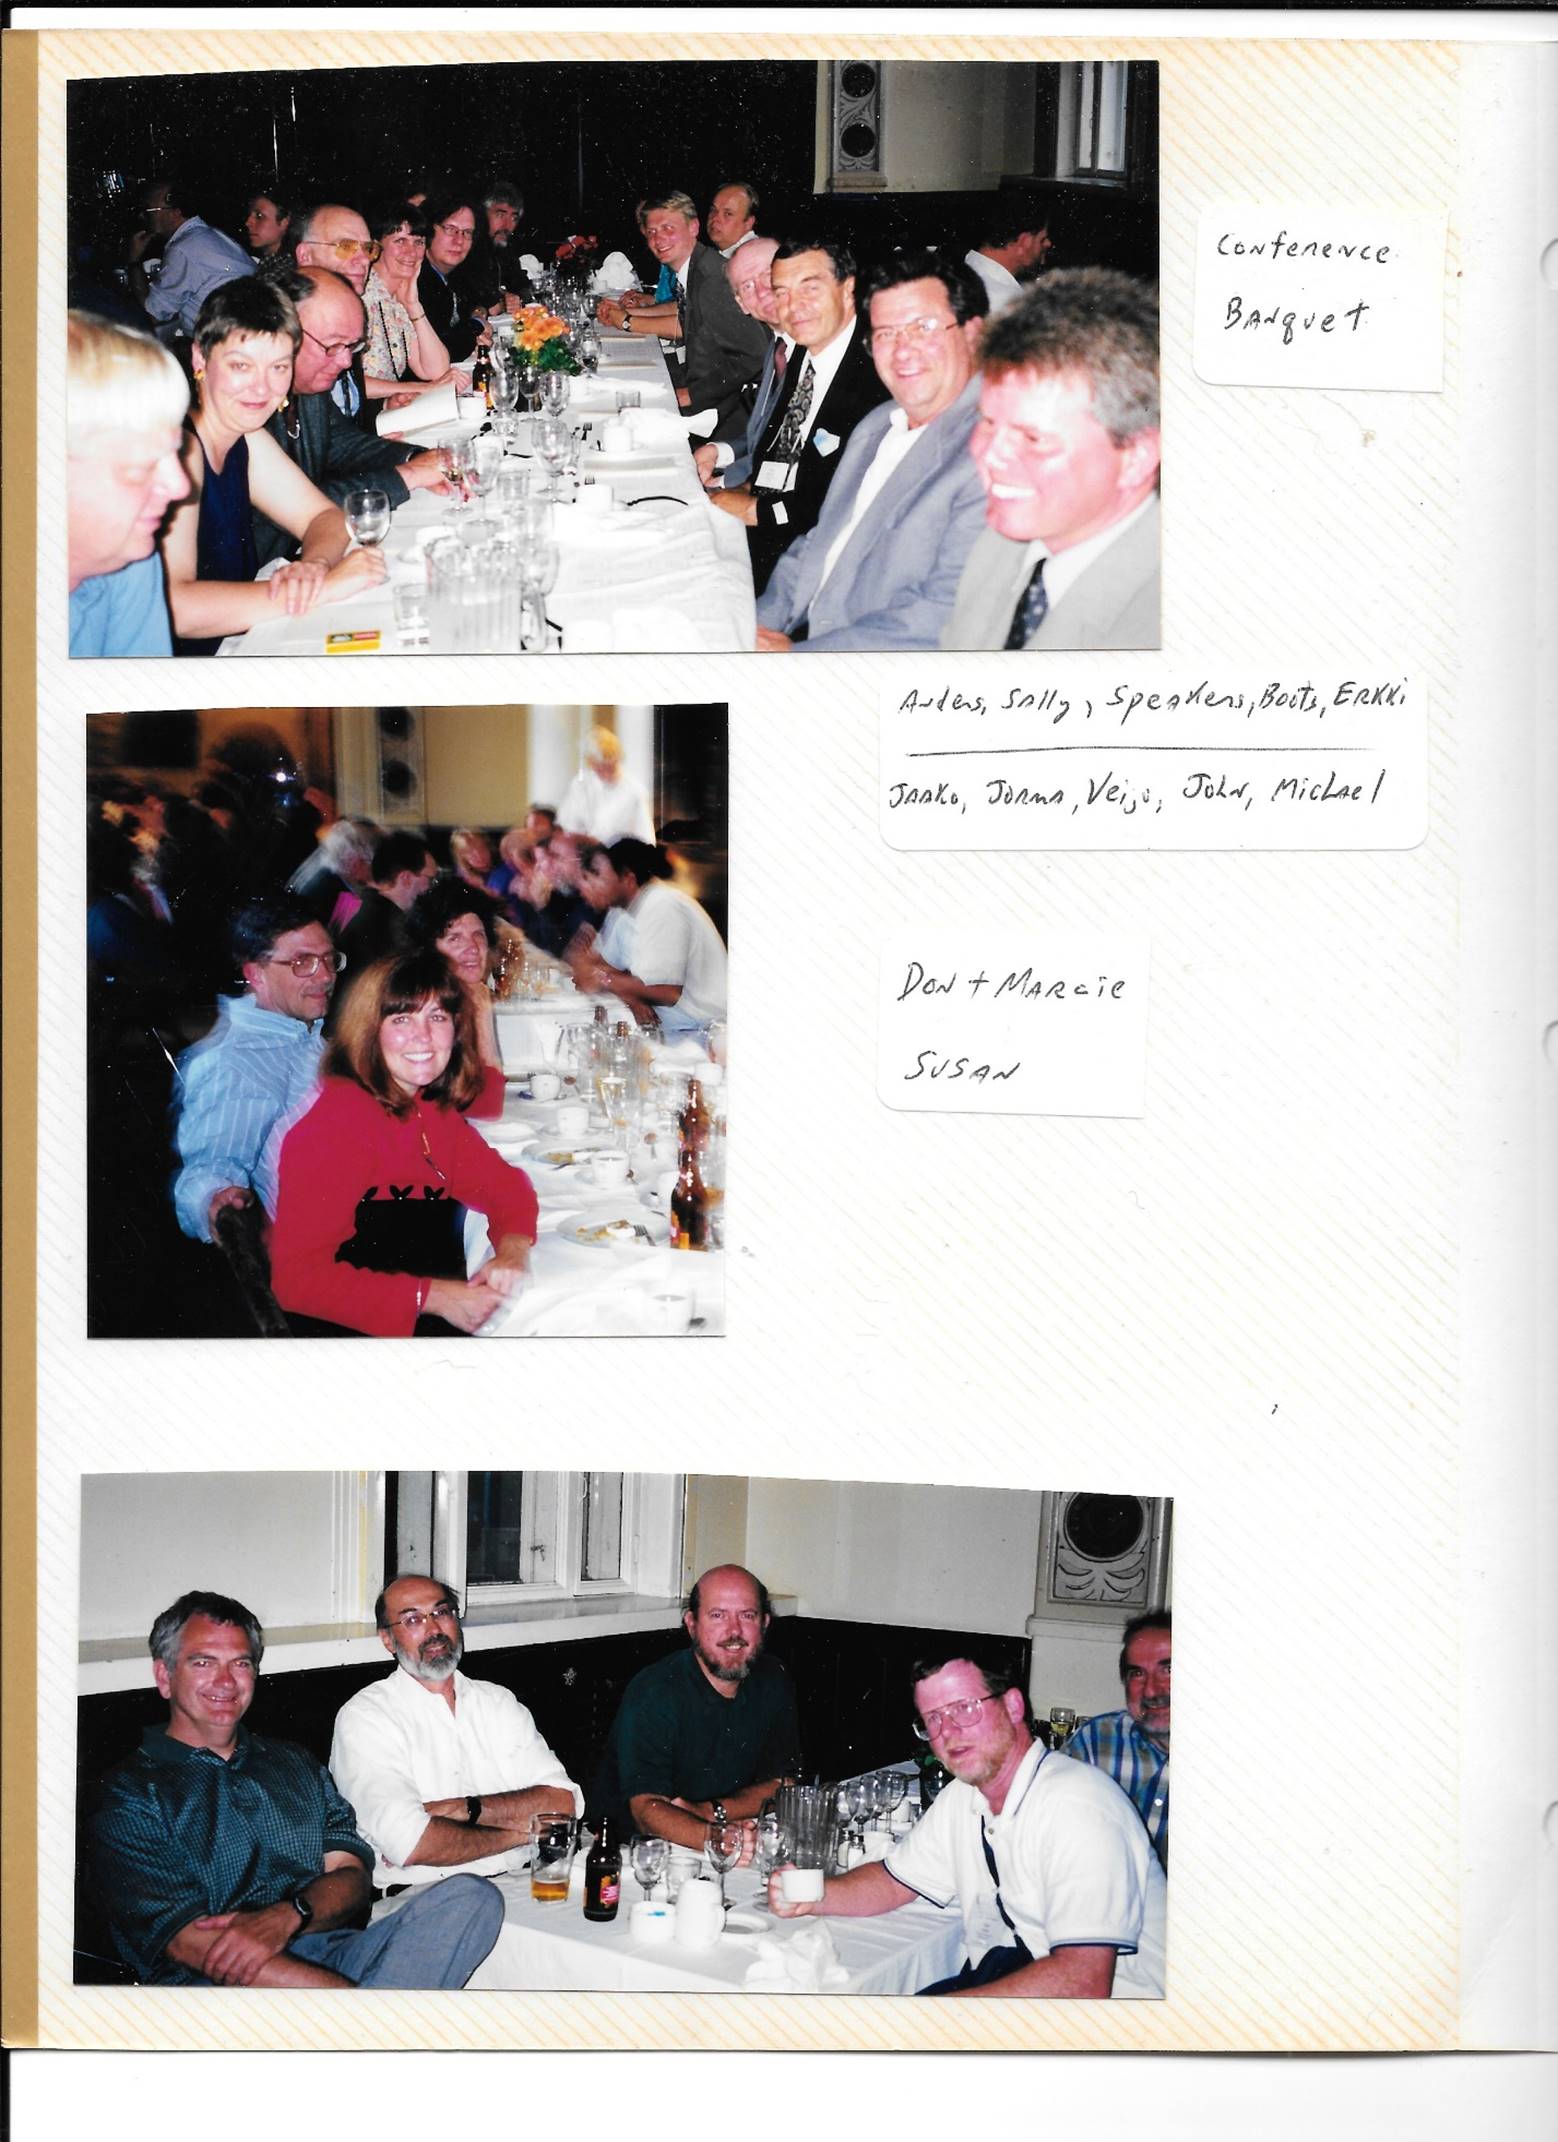 Conference
Banquet
Anders, Sally, Speakers, Boots, Erkki
Jaako, Jorma, Veijo, John, Michael
Don + Marcie
Susan